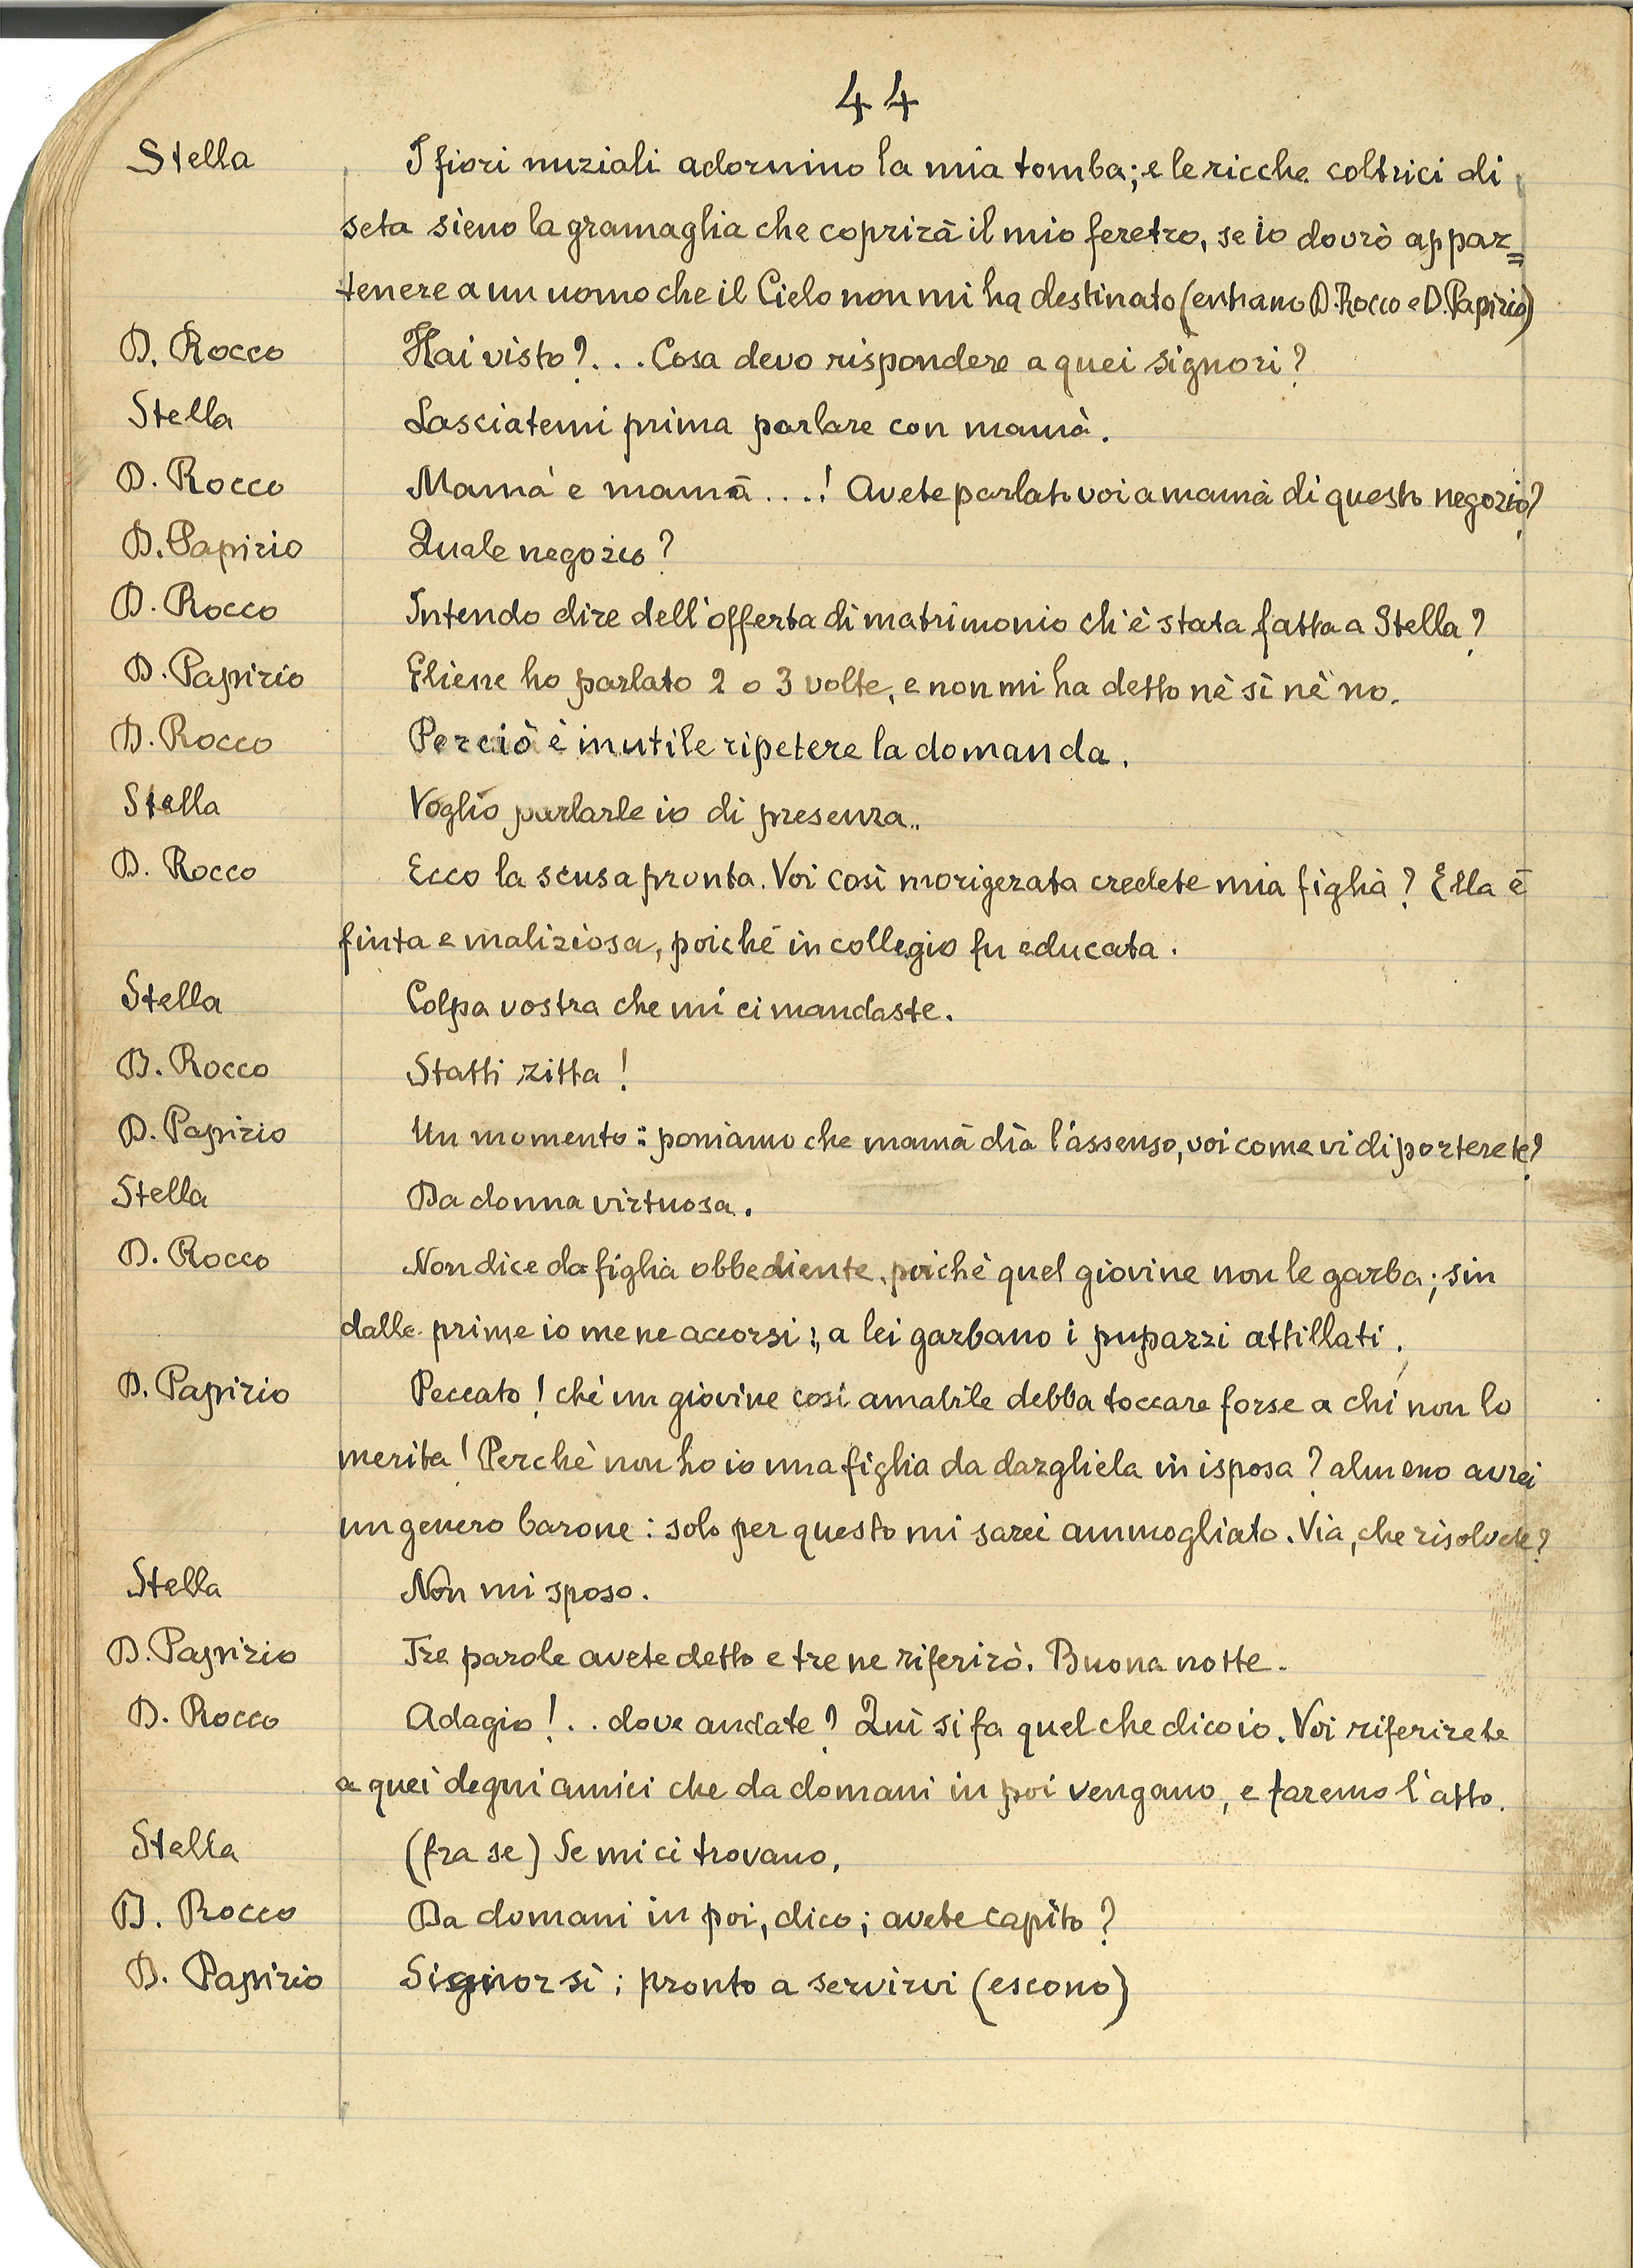 44
Stella I fiori nuziali adornino la mia tomba; e le ricche coltrici di
seta sieno la gramaglia che coprirà il mio feretro, se io dovrò appar=
tenere a un uomo che il Cielo non mi ha destinato (entrano D. Rocco e D. Papirio)
D. Rocco Hai visto?... Cosa devo rispondere a quei signori?
Stella Lasciatemi prima parlare con mamà.
D. Rocco Mamà e mamà...! Avete parlato voi a mamà di questo negozio?
D. Papirio Quale negozio?
D. Rocco Intendo dire dell'offerta di matrimonio ch'è stata fatta a Stella?
D. Papirio Gliene ho parlato 2 o 3 volte, e non mi ha detto nè sì nè no.
D. Rocco Perciò è inutile ripetere la domanda.
Stella Voglio parlarle io di presenza..
D. Rocco Ecco la scusa pronta. Voi così morigerata credete mia figlia? Ella è
finta e maliziosa, poiché in collegio fu educata.
Stella Colpa vostra che mi ci mandaste.
D. Rocco Statti zitta!
D. Papirio Un momento: poniamo che mamà dia l'assenso, voi come vi diporterete?
Stella Da donna virtuosa.
D. Rocco Non dice da figlia obbediente, poichè quel giovine non le garba; sin
dalle prime io me ne accorsi; a lei garbano i pupazzi attillati.
D. Papirio Peccato! chè un giovine così amabile debba toccare forse a chi non lo
merita! Perchè non ho io una figlia da dargliela in isposa? almeno avrei
un genero barone: solo per questo mi sarei ammogliato. Via, che risolvete?
Stella Non mi sposo.
D. Papirio Tre parole avete detto e tre ne riferirò. Buona notte.
D. Rocco Adagio!.. dove andate? Quì si fa quel che dico io. Voi riferirete
a quei degni amici che da domani in poi vengano, e faremo l'atto.
Stella (fra se) Se mi ci trovano.
D. Rocco Da domani in poi, dico; avete capito?
D. Papirio Signor sì; pronto a servirvi (escono)